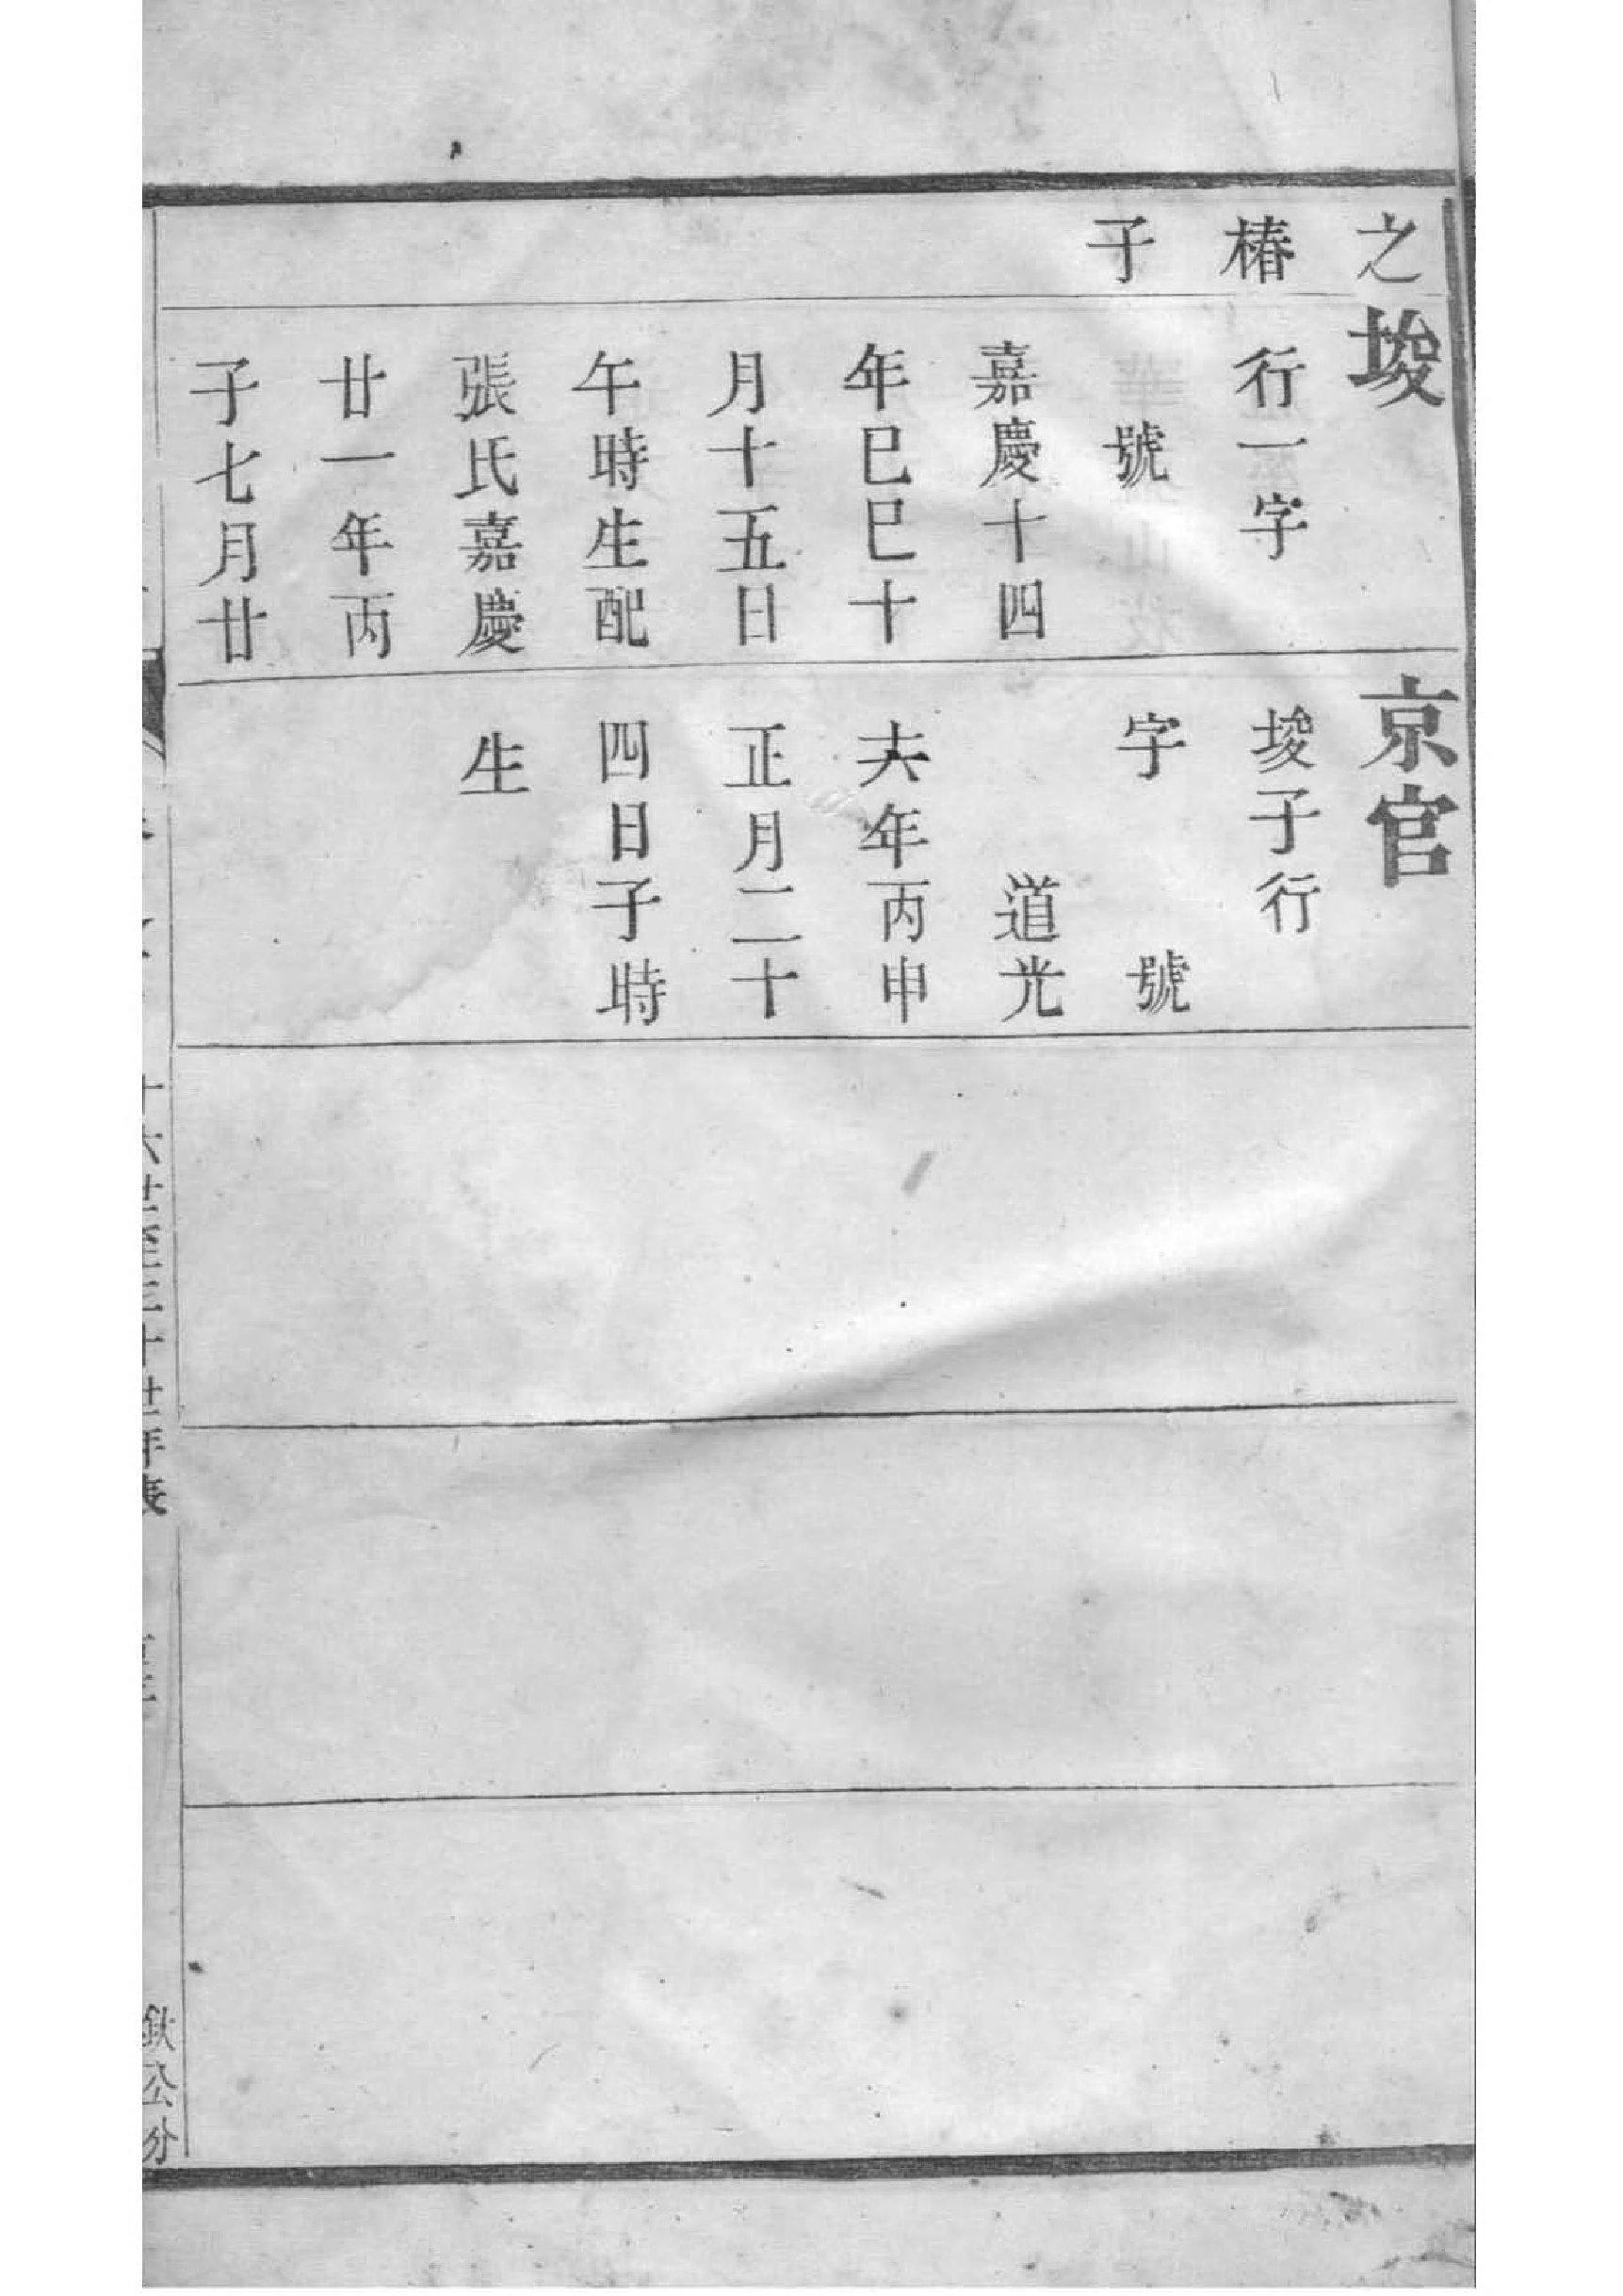 之
椿
子
埈
行一字
號
嘉慶十四
年巳巳十
月十五日
午時生配
張氏嘉慶
廿一年丙
子七月廿
京官
埈子行
字號
道光
十六年丙申
正月二十
四日子時
生
十六世至二十世年表
公分